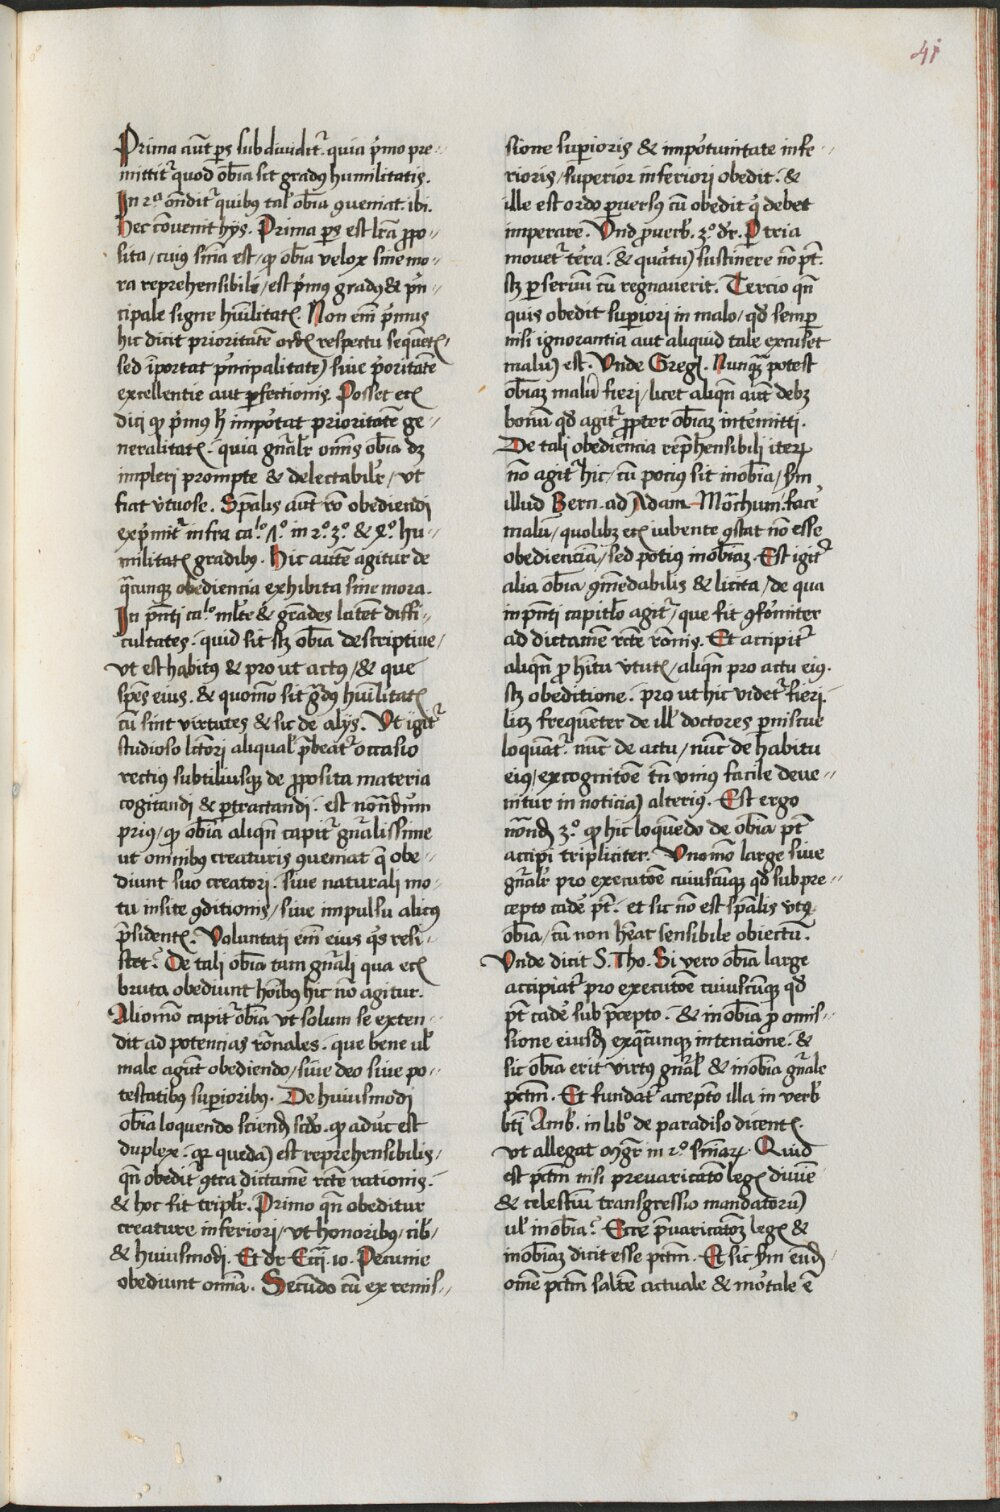 41
Prima aūt ps̄ subdividitʳ. quia pͥmo pre-
mittitʳ quod ob̄ia sit gradꝰ humilitatis.
In 2.º on̄ditʳ quibꝰ tal̓ ob̄ia ꝯueniat ibi.
Hec cōuenit hijs. Prima ps̄ est l̄ra ꝓpo-
sita / cuiꝰ sn̄ia est / ꝙ ob̄ia velox sine mo-
ra reprehensibili / est pͥmus gradꝰ & pͥn-
cipale signe hūilitatꝭ. Non em̄ pͥmus
hic dicit prioritatē ordīs respectu sequētꝭ /
sed īportat pͥncipalitatē siue pͥoritatē
excellentie aut ꝑfectionis. Posset ecī
dici ꝙ pͥmus h̄ impōtat prioritatē ge-
neralitatꝭ. quia gn̄alr̄ om̄īs ob̄ia dꝫ
impleri prompte & delectabilr̄ / vt
fiat v̓tuose. Sp̄alis aūt rō obediendi
expͥmitʳ infra ca.ºº 1.º in 2.º 3.º & 4.º hu-
militatꝭ gradibꝰ. Hic autē agitur de
q̄cunqꝫ obediencia exhibita sine mora.
In pn̄ti ca.ºº ml̄te & grādes latēt diffi-
cultates. quid sit sꝫ ob̄ia descriptiue /
vt est habitꝰ & pro ut actꝰ / & que
spēs eius. & quomō sit gͣdꝰ hūilitatꝭ
cū sint virtutes & sic de alijs. Vt igitʳ
studioso lc̄tori aliqual̓ p̄beatʳ occasio
rectius subtiliusqꝫ de ꝓposita materia
cogitandi & ꝑtractandi. est notādum
priꝰ / ꝙ ob̄ia aliqn̄ capitʳ gn̄alissime
ut omnibꝰ creaturis ꝯueniat q̄ obe-
diunt suo creatori. siue naturali mo-
tu insite ꝯditionis / siue impulsu alicꝰ
p̄sidentꝭ. Voluntati em̄ eius q̓s resi-
stet? De tali ob̄ia tam gn̄ali qua ecī
bruta obediunt hōibꝰ hic nō agitur.
Aliomō capitʳ ob̄ia vt solum se exten-
dit ad potencias rōnales. que bene ul̓
male agūt obediendo / siue deo siue po-
testatibꝰ suꝑioribꝰ. De huiusmodi
ob̄ia loquendo sciend̄ sc̄do. ꝙ aduc est
duplex. qꝛ quedā est reprehensibilis /
qn̄ obedit ꝯtra dictamē rc̄te rationis.
& hoc fit triplr̄. Primo qn̄ obeditur
creature inferiori / vt honoribꝰ / cib̓ /
& huiusmodi. Et dr̄ Ecc̄i. 10. Pecunie
obediunt om̄ia. Secūdo cū ex remis-
sione suꝑioris & impōtunitate infe-
rioris / suꝑior inferiori obedit. &
ille est ordo ꝑuersꝰ cū obedit q̓ debet
imperare. Vnd̄ ꝓuerb̓. 3.º dr̄. Per tria
mouetʳ t̄ra. & quātū sustinere nō pt̄.
sꝫ ꝑ seruū cū regnauerit. Tercio qn̄
quis obedit suꝑiori in malo / qd̓ semꝑ
nisi ignorantia aut aliquid tale excuset
malū est. Vnde Greg̓. Nunqͣ potest
ob̄iaꝫ malū fieri / licet aliqn̄ aūt debꝫ
bonū qd̓ agitʳ ꝓpter ob̄iaꝫ intēmitti.
De tali obediencia rep̄hensibili iterꝝ
nō agitʳ hic / cū pocius sit inob̄ia / s̄m
illud Bern. ad Adam Mo̅chum. face̓
malū / quolibꝫ ecī iubente ꝯstat nō esse
obedienciā / sed potius inob̄iaꝫ. Est igitʳ
alia ob̄ia ꝯmēdabilis & licita / de qua
in pn̄ti capitlo agitʳ / que fit ꝯfōmiter
ad dictamē rc̄te rōnis. Et accipitʳ
aliqn̄ ꝓ hītu v̓tutꝭ / aliqn̄ pro actu eiꝰ.
sꝫ obeditione. pro ut hic videtʳ fieri.
licꝫ frequēter de ill̓ doctores ꝑmiscue
loquātʳ. nūc de actu / nūc de habitu
eiꝰ / ex cognitōe tn̄ vnius facile deue-
nitur in noticiā alteriꝰ. Est ergo
nōand̄ 3.º ꝙ hic loquēdo de ob̄ia pt̄
accipi tripliciter. Vnomō large siue
gn̄alr̄ pro executōe cuiuscūqꝫ qd̓ sub pre-
cepto cade̓ pt̄. et sic nō est sp̄alis v̓tꝰ
ob̄ia / cū non hēat sensibile obiectū.
Vnde dicit S. Tho. Si vero ob̄ia large
accipiatʳ pro executōe cuiuscūqꝫ qd̓
pt̄ cade̓ sub p̄cepto. & inob̄ia ꝓ omis-
sione eiusd̄ ex q̄cunqꝫ intencione. &
sic ob̄ia erit virtꝰ gn̄al̓ & inob̄ia gn̄ale
pctm̄. Et fundatʳ accepto illa in verb̓
bt̄i Amb̓. in lib.º de paradiso dicentꝭ.
vt allegat mgr̄ in 2.º sn̄iaꝝ. Quid
est pctm̄ nisi preuaricatō legꝭ diuīe
& celestiū transgressio mandatorū
ul̓ inob̄ia? Ecce p̄uaricatōꝫ legꝭ &
inob̄iaꝫ dicit esse pctm̄. Et sic s̄m eūd̄
om̄e pctm̄ saltē actuale & mōtale ē